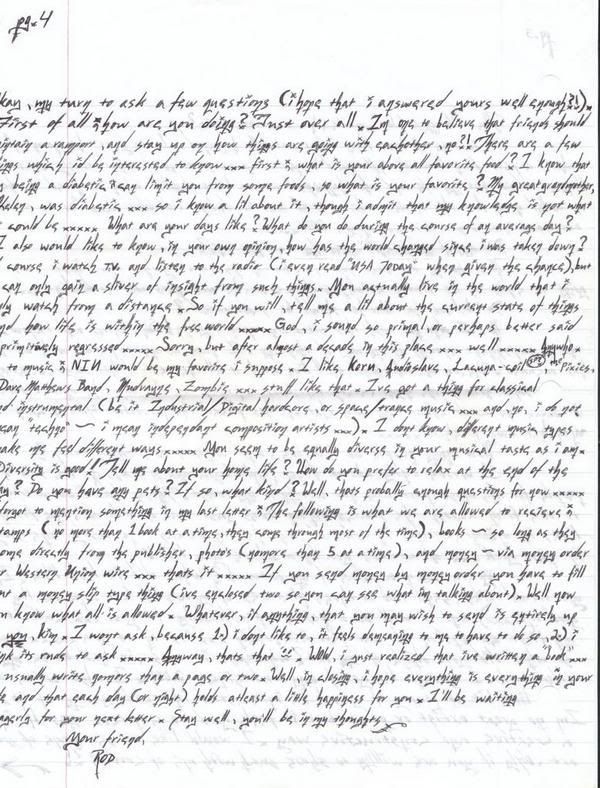 pg. 4
kay, my turn to ask a few questions (i hope that i answered yours well enough?!).
First of all, how are you doing? Just over all. Im one to believe that friends should
intain a rapport, and stay up on how things are going with eachother, no?! There are a few
ings which i'd be interested to know xxx first, what is your above all favorite food? I know that
y being a diabetic can limit you from some foods, so what is your favorite? My great grandmother,
Helen, was diabetic xxx so i know a lil about it, though i admit that my knowledge is not what
could be xxxxx What are your days like? What do you do during the course of an average day?
I also would like to know, in your own opinion, how has the world changed since i was taken down?
course i watch T.V. and listen to the radio (i even read "USA TODAY" when given the chance), but
can only gain a sliver of insight from such things. You actually live in the world that i
ly watch from a distance. So if you will, tell me a lil about the current state of things
nd how life is within the free world xxxxx God, i sound so primal, or perhaps better said
primitively regressed xxxxx Sorry, but after almost a decade in this place xxx well xxxxx anywho.
to music, NIN would be my favorite i suppose. I like Korn, Audioslave, Lacuna-coil the Pixies,
Dave Matthews Band, Mudvayne, Zombie xxx stuff like that. I've got a thing for classical
nd instrumental (be it Industrial/Digital hardcore, or space/trance music xxx and no, i do not
ean "techno" ~ i mean independant composition artists xxx). I dont know, different music types
ake me feel different ways xxxxx You seem to be equally diverse in your musical taste as i am.
Diversity is good! Tell me about your home life? How do you prefer to relax at the end of the
ay? Do you have any pets? If so, what kind? Well, thats probally enough questions for now xxxxx
forgot to mention something in my last letter, The following is what we are allowed to recieve,
tamps (no more than 1 book at a time, they come through most of the time), books ~ so long as they
ome directly from the publisher, photo's (nomore than 5 at a time), and money ~ via money order
r Western Union wire xxx thats it xxxxx If you send money by money order you have to fill
ut a money slip type thing (ive enclosed two so you can see what im talking about). Well now
u know what all is allowed. Whatever, if anything, that you may wish to send is entirely up
you, Kim. I wont ask, because 1.) i dont like to, it feels demeaning to me to have to do so, 2.) i
ink its rude to ask xxxxx Anyway, thats that !! . WOW, i just realized that ive written a "book" xxx
usually write nomore than a page or two. Well, in closing, i hope everything is everything in your
e and that each day (or night) holds atleast a little happiness for you. I'll be waiting
agerly for your next letter. Stay well, you'll be in my thoughts
Your friend,
ROD